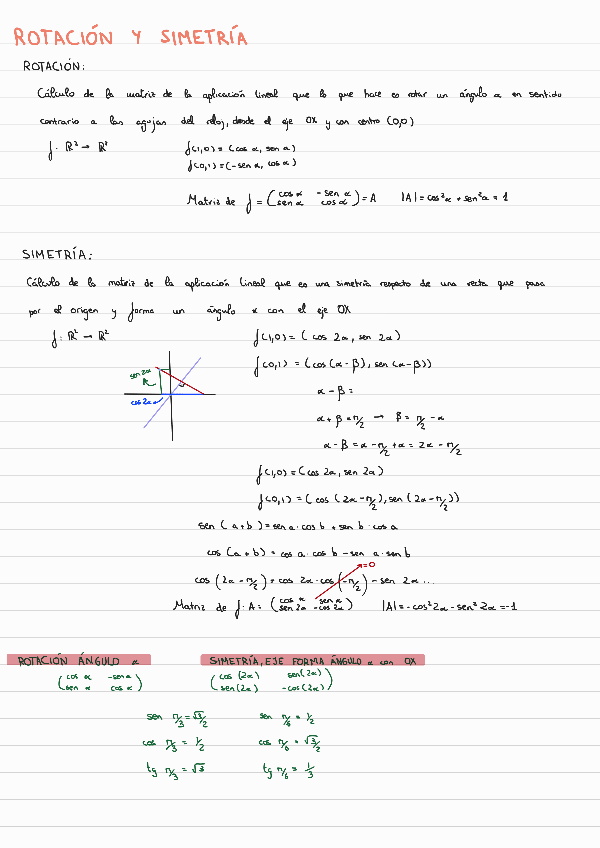 ROTACIÓN Y SIMETRÍA
ROTACIÓN:
Cálculo de la matriz de la aplicación lineal que lo que hace es rotar un ángulo α en sentido
contrario a las agujas del reloj, desde el eje OX y con centro (0,0)
f: ℝ² → ℝ² f(1,0) = (cos α, sen α)
f(0,1) = (-sen α, cos α)
Matriz de f = (cos α -sen α / sen α cos α) = A |A| = cos²α + sen²α = 1
SIMETRÍA:
Cálculo de la matriz de la aplicación lineal que es una simetría respecto de una recta que pasa
por el origen y forma un ángulo α con el eje OX
f: ℝ² → ℝ² f(1,0) = (cos 2α, sen 2α)
f(0,1) = (cos(α-β), sen(α-β))
sen 2α
cos 2α
α
α - β =
α + β = π/2 → β = π/2 - α
α - β = α - π/2 + α = 2α - π/2
f(1,0) = (cos 2α, sen 2α)
f(0,1) = (cos(2α - π/2), sen(2α - π/2))
sen (a+b) = sen a · cos b + sen b · cos a
cos (a+b) = cos a · cos b - sen a · sen b
=0
cos (2α - π/2) = cos 2α · cos (-π/2) - sen 2α ...
Matriz de f: A: (cos α sen α / sen 2α -cos 2α) |A| = -cos²2α - sen²2α = -1
ROTACIÓN ÁNGULO α SIMETRÍA, EJE FORMA ÁNGULO α con OX
(cos α -sen α / sen α cos α) (cos (2α) sen(2α) / sen(2α) -cos(2α))
sen π/3 = √3/2 sen π/6 = 1/2
cos π/3 = 1/2 cos π/6 = √3/2
tg π/3 = √3 tg π/6 = 1/3